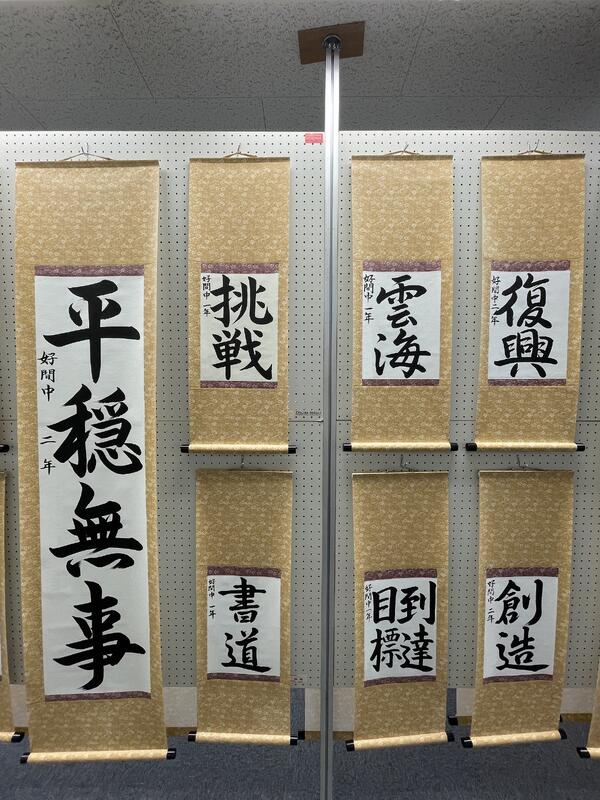 平穏無事
好間中 二年
挑戦
好間中 一年
雲海
好間中 一年
復興
好間中 二年
書道
好間中 一年
到達
目標
好間中 一年
創造
好間中 二年